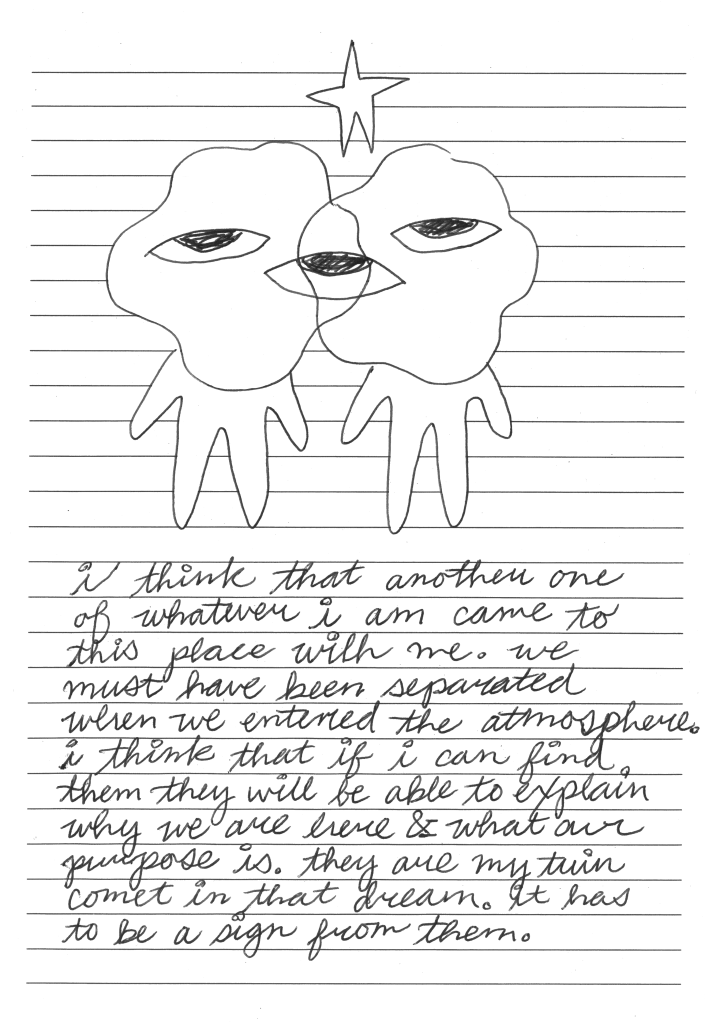 i think that another one
of whatever i am came to
this place with me. we
must have been separated
when we entered the atmosphere.
i think that if i can find
them they will be able to explain
why we are here & what our
purpose is. they are my twin
comet in that dream. it has
to be a sign from them.